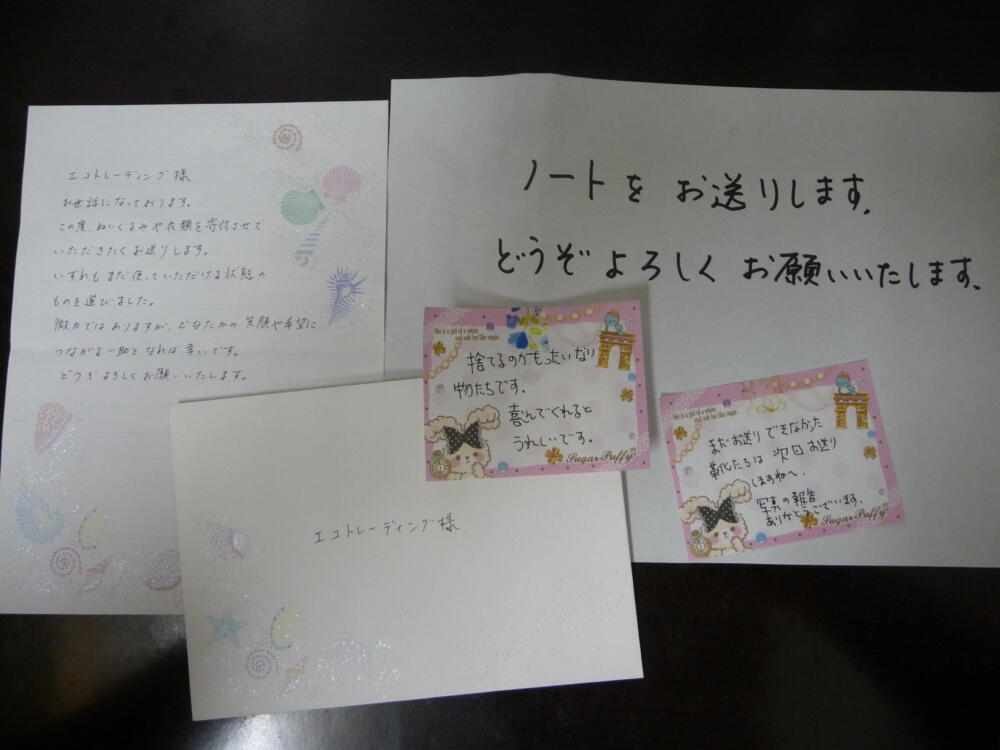 エコトレーディング様
お世話になっております。
この度、ぬいぐるみや衣類を寄付させて
いただきたくお送りします。
いずれもまだ使っていただける状態の
ものを選びました。
微力ではありますが、どなたかの笑顔や希望に
つながる一助となれば幸いです。
どうぞよろしくお願いいたします。
ノートをお送りします。
どうぞよろしくお願いいたします。
She is a girl of a white
and soft fur like sugar.
捨てるのがもったいない
物たちです。
喜んでくれると
うれしいです。
Sugar Puffy
She is a girl of a white
and soft fur like sugar.
まだお送りできなかった
靴たちは次回お送り
しますね。
写真の報告
ありがとうございます。
Sugar Puffy
エコトレーディング様